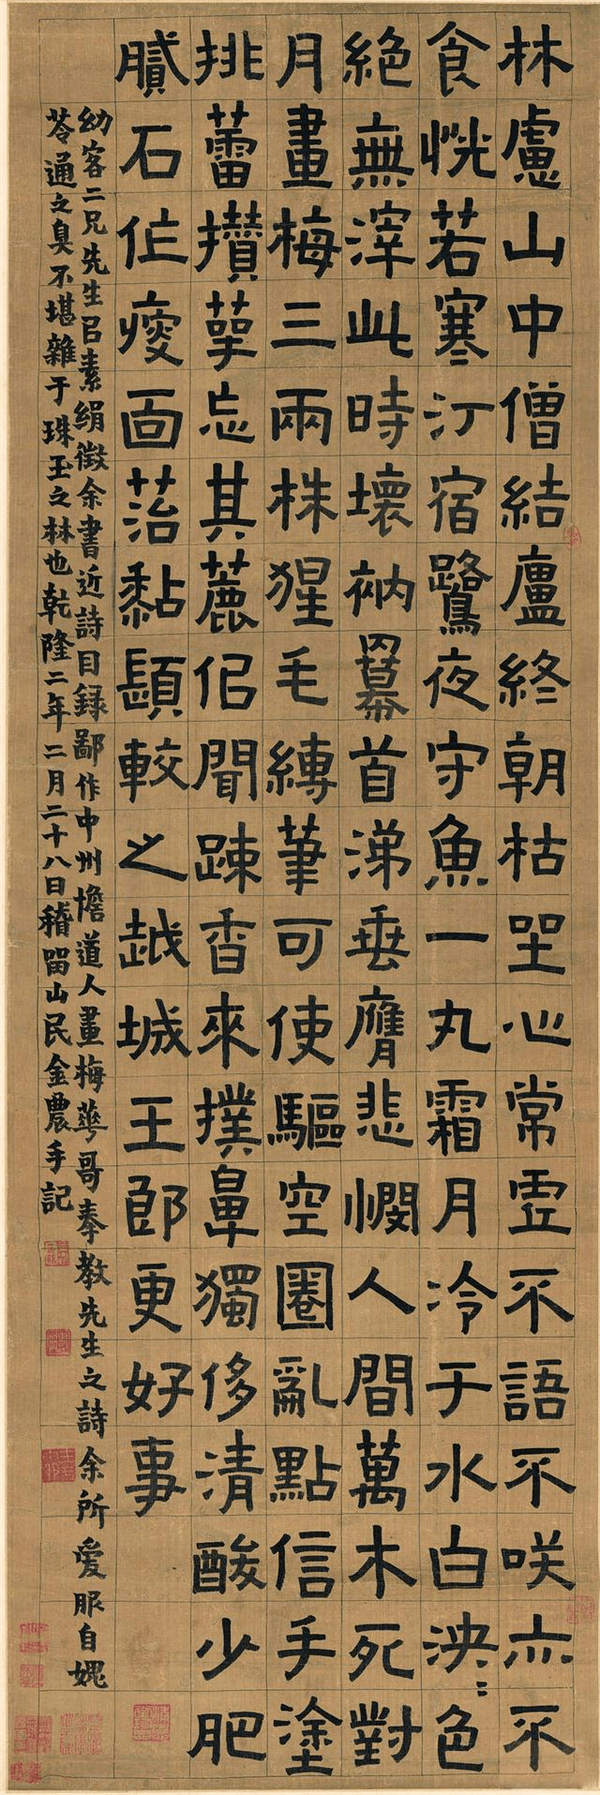 林慮山中僧結廬終朝枯坐心常霊不語不咲亦不
食恍若寒汀宿鷺夜守魚一丸霜月冷于水白泱〻色
絶無滓此時壞衲羃首涕垂膺悲憫人間萬木死對
月畫梅三兩株猩毛縛筆可使驅空圈亂點信手塗
挑蕾攢萼忘其麤但聞踈香來撲鼻獨侈清酸少肥
膩石作瘦面苔黏顋較之越城王郎更好事
幼客二兄先生㠯素絹徵余書近詩目録鄙作中州憺道人畫梅華哥奉教先生之詩余所愛服自媿
苓通之臭不堪雜于珠玉之林也乾隆二年二月二十八日稽留山民金農手記